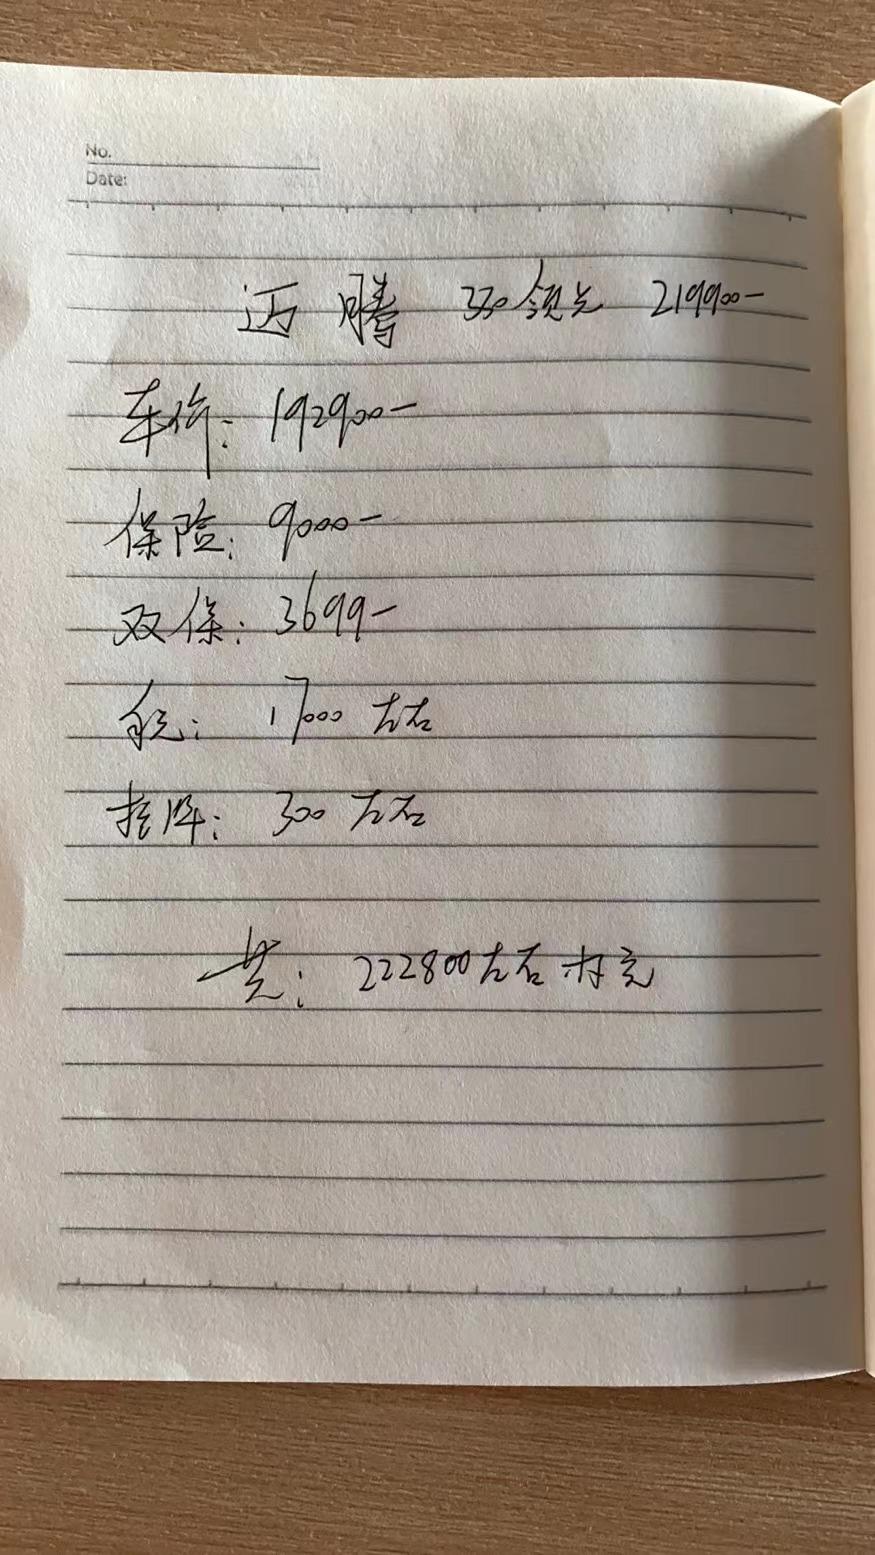 No.
Date:
迈腾 330领先 219900-
车价：192900-
保险：9000-
双保：3699-
税：17000左右
挂牌：300左右
共：222800左右办完